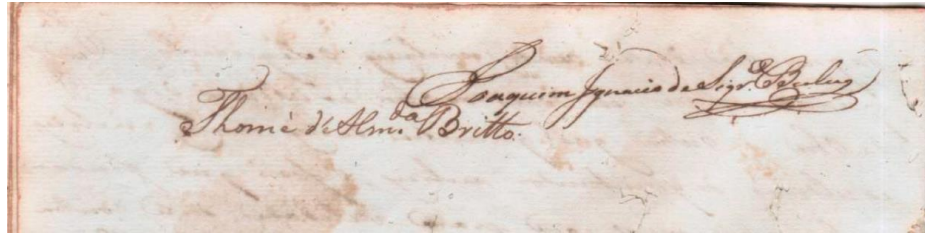 Joaquim Ignacio de Siqr.ª
Thomé d'Alm.da Britto.